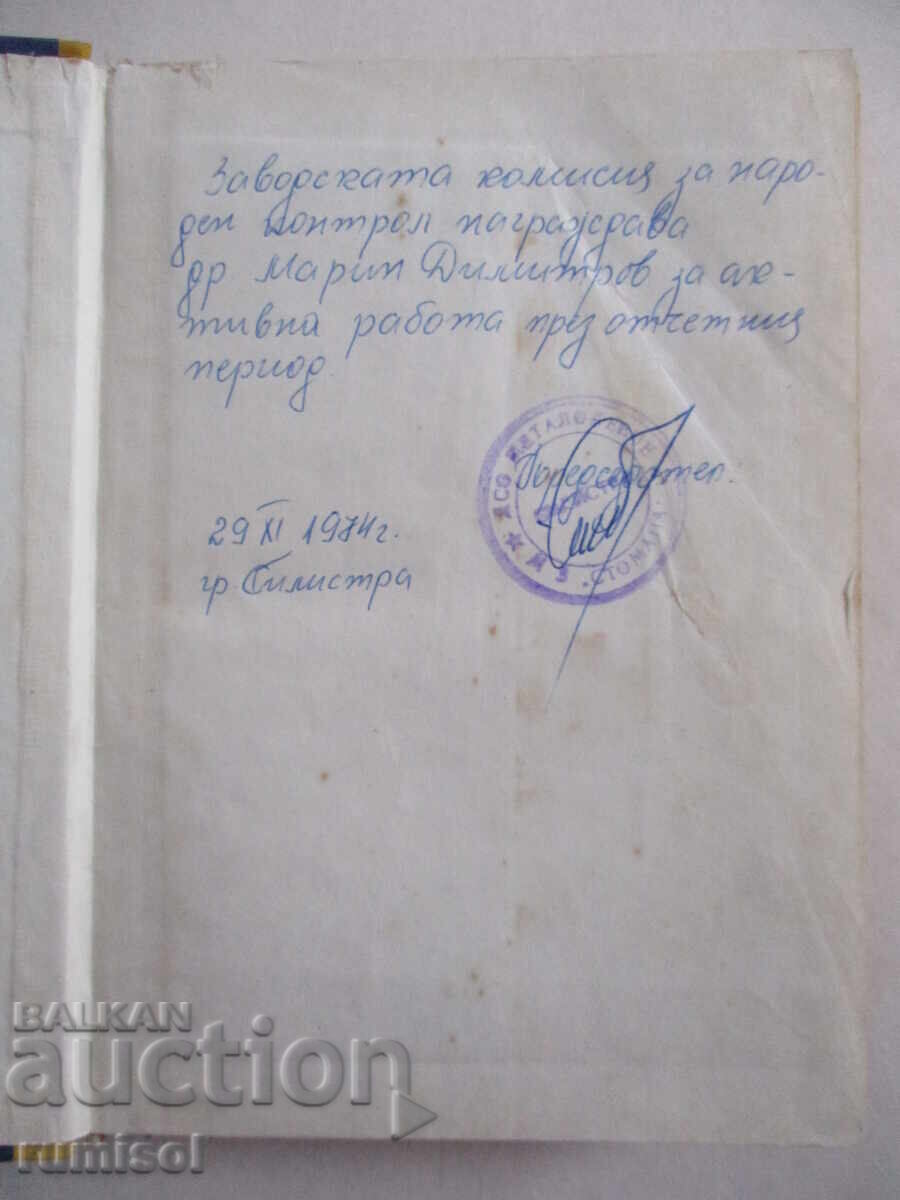 Заводската комисия за наро-
ден контрол награждава
др Марин Димитров за ак-
тивна работа през отчетния
период.
Председател:
29 XI 1974 г.
гр. Силистра
ДСО МЕТАЛО
МЗ "СТОМАНА"
BALKAN
auction
rumisol